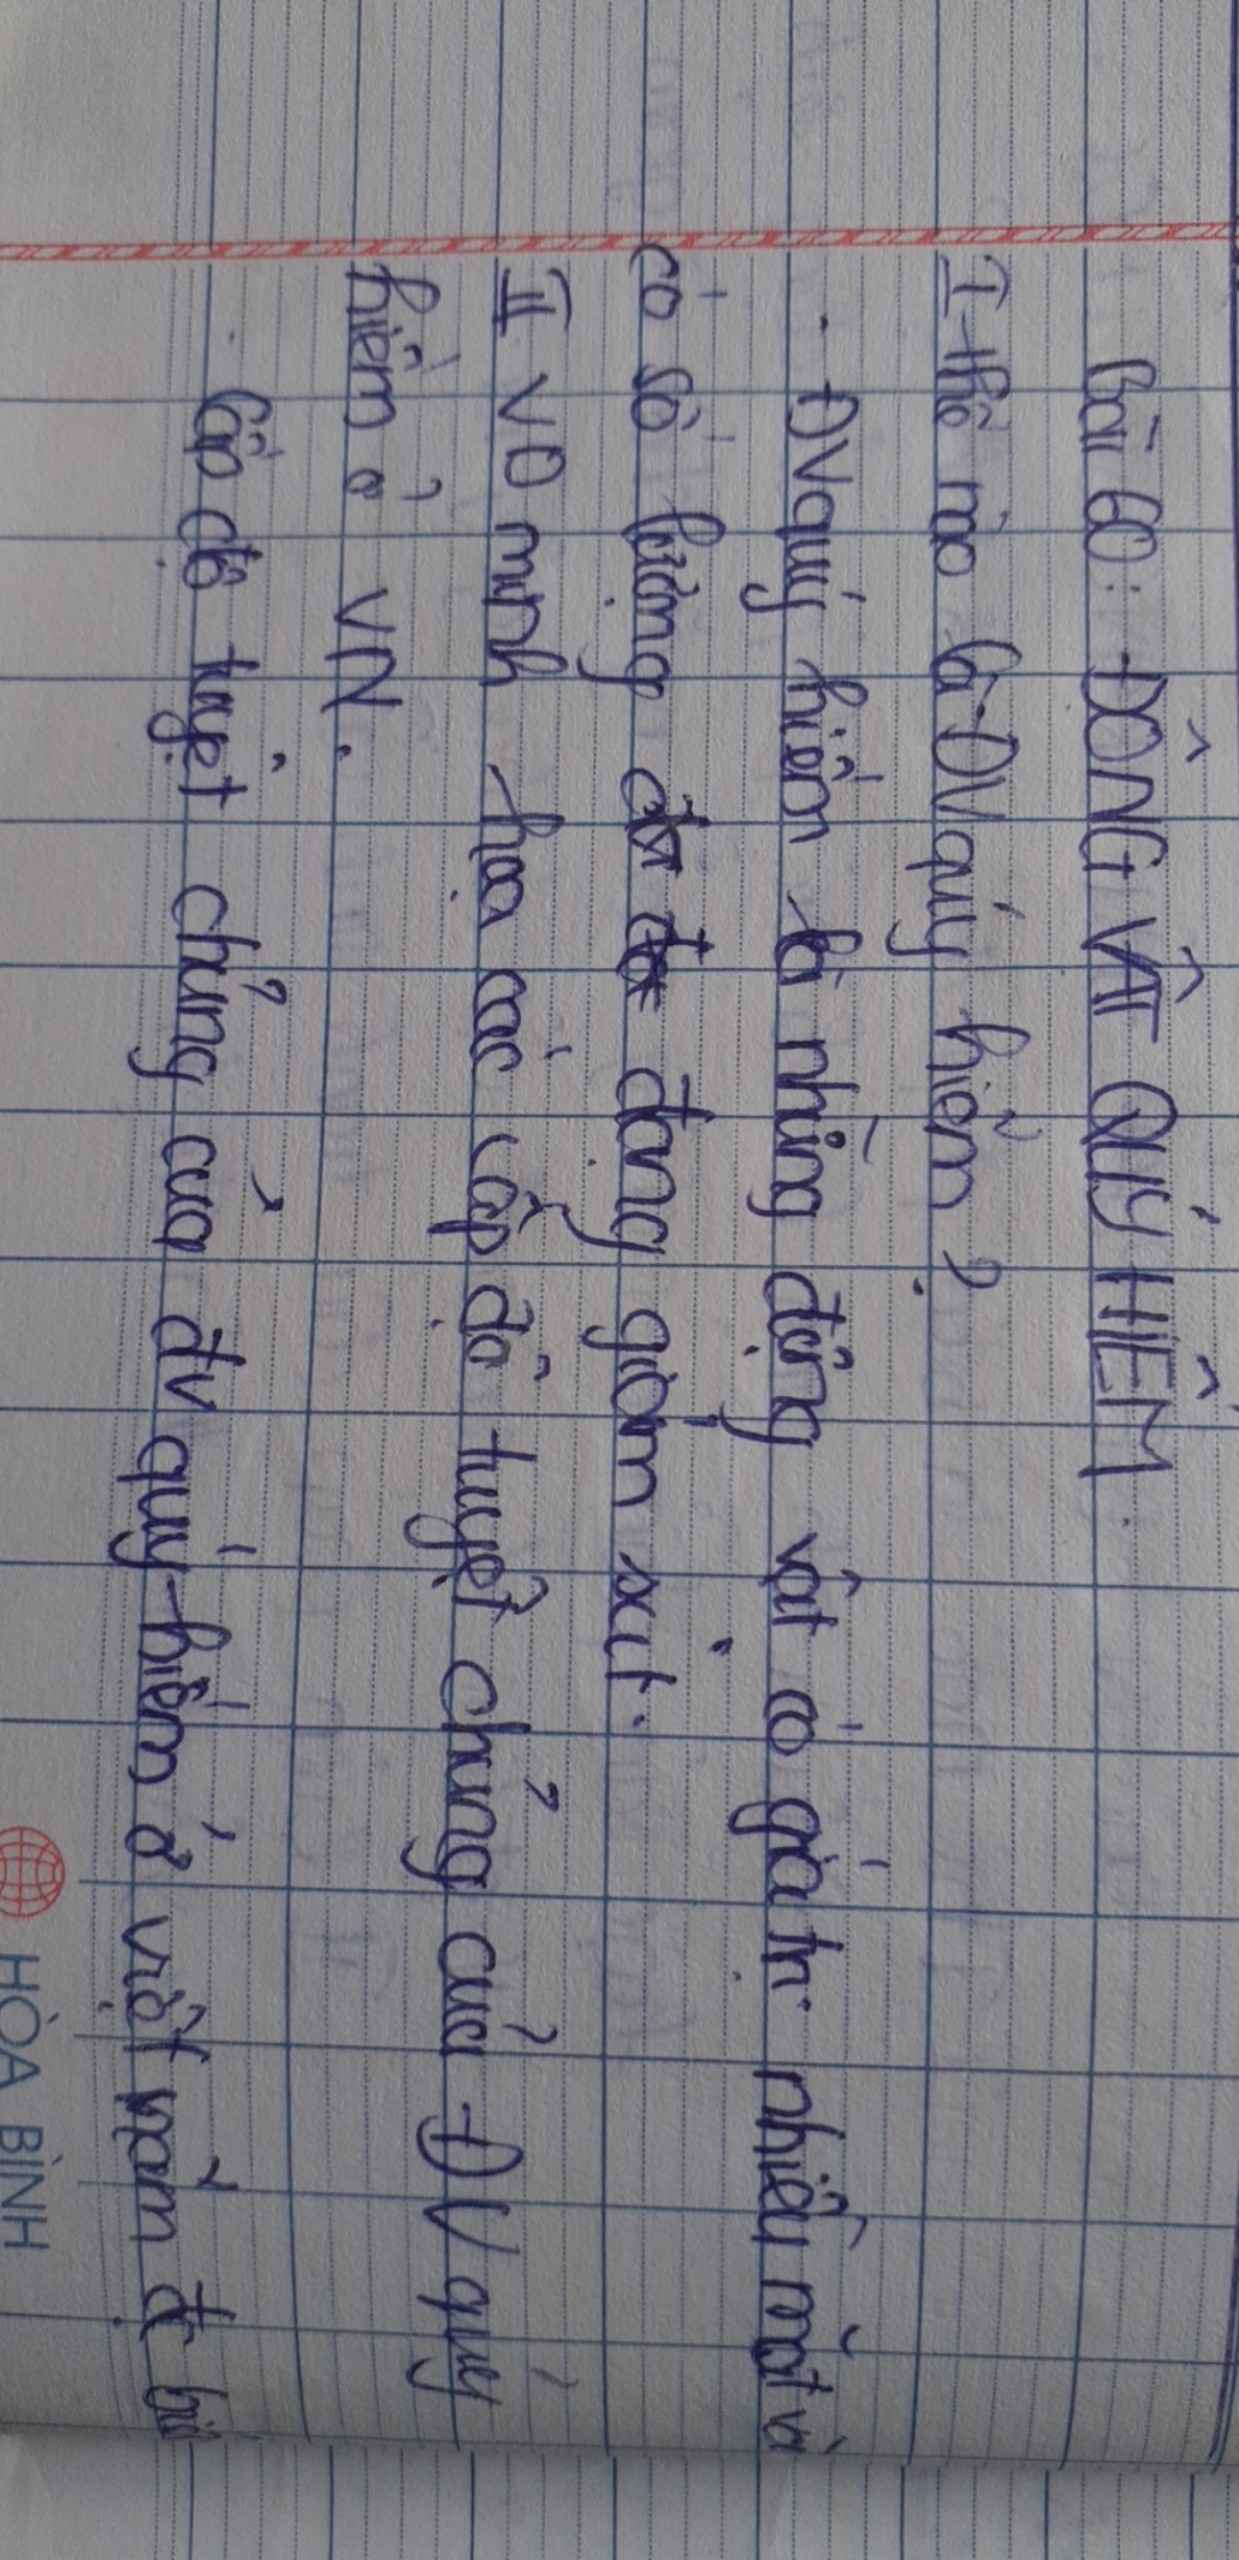 Bài 60: ĐỘNG VẬT QUÝ HIẾM.
I thế nào là ĐV quý hiếm?
- ĐV quý hiếm là những động vật có giá trị nhiều mặt và
có số lượng đang giảm sút.
II VD minh họa các cấp độ tuyệt chủng của ĐV quý
hiếm ở VN.
- Cấp độ tuyệt chủng của đv quý hiếm ở việt nam đc
HÒA BÌNH